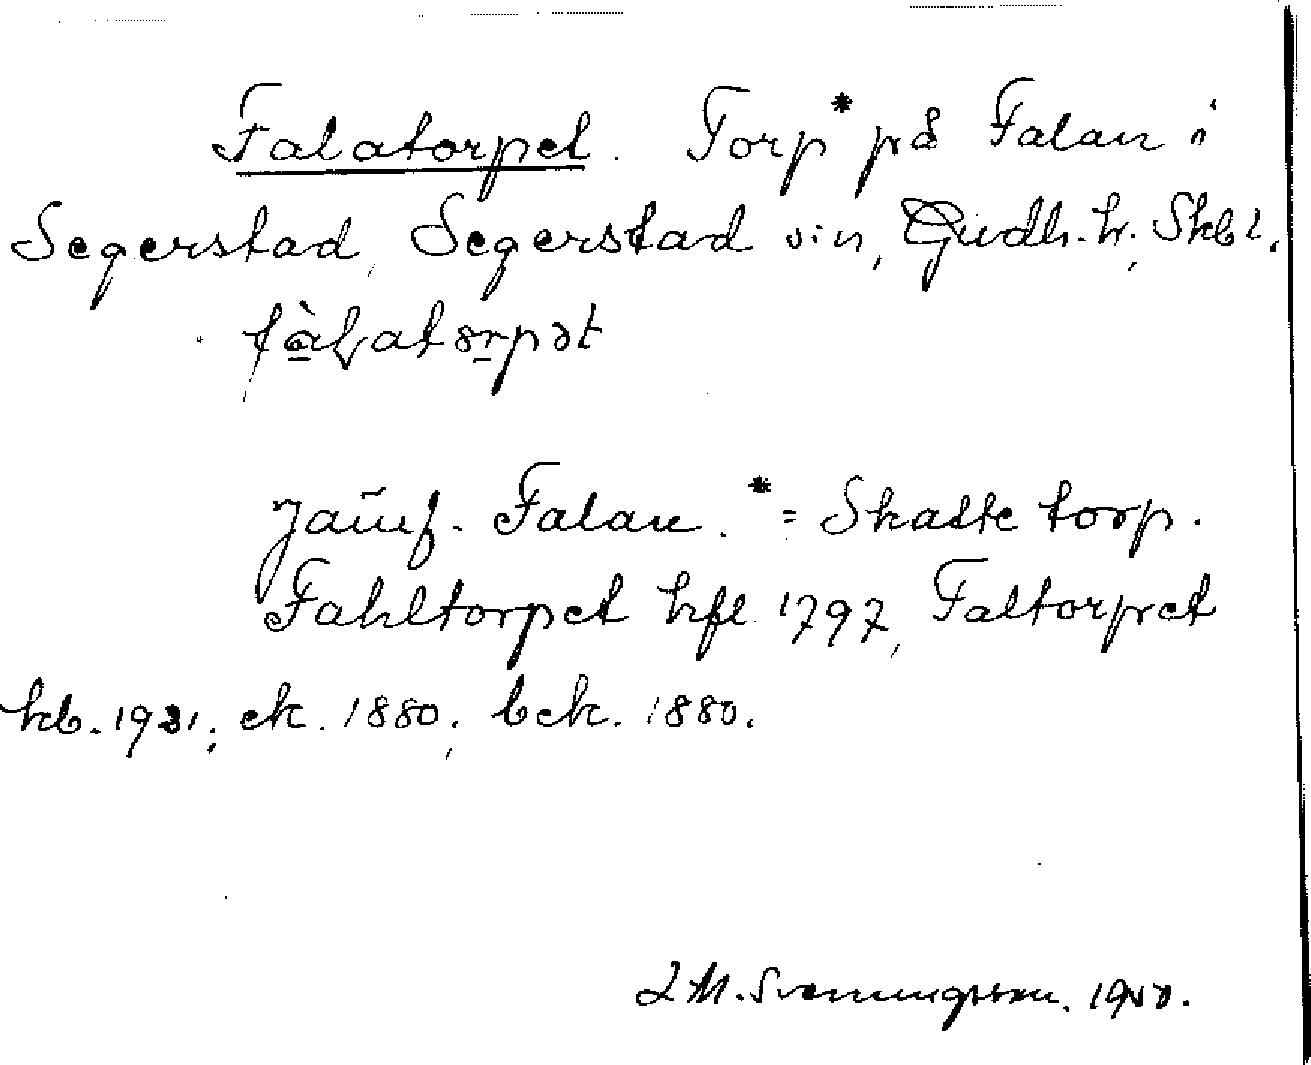 Falatorpet. Torp* på Falan i
Segerstad, Segerstad sn, Gudh. hr, Skbl.
fàLatorpət
Jämf. Falan. * = Skattetorp.
Fahltorpet hfl 1797, Faltorpet
kb. 1931; ek. 1880; bek. 1880.
L M. Svenungsson. 1950.